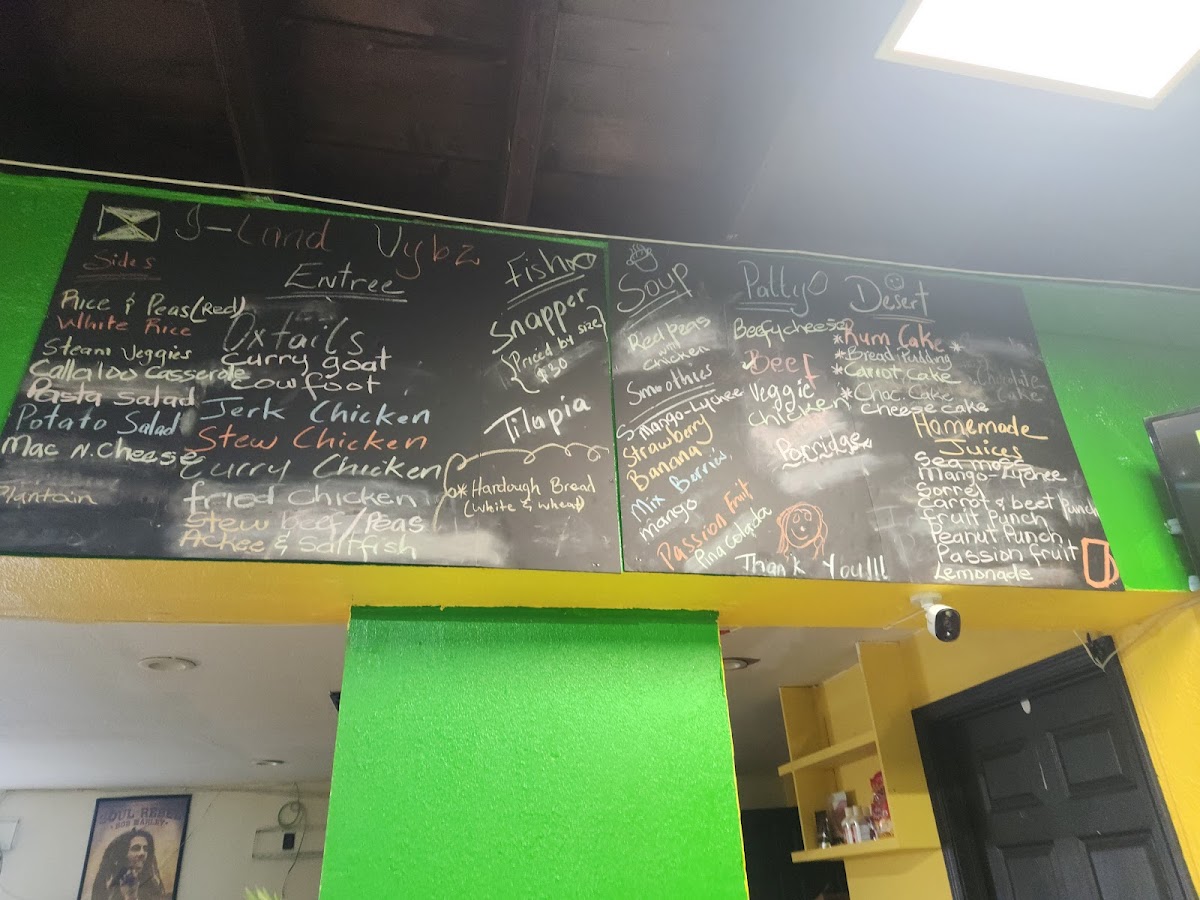 I-Land Vybz
Sides
Rice & Peas (Red)
White Rice
Steam Veggies
Callaloo Casserole
Pasta Salad
Potato Salad
Mac N. Cheese
Plantain
Entree
Oxtails
Curry goat
Cowfoot
Jerk Chicken
Stew Chicken
Curry Chicken
fried Chicken
Stew beef/Peas
Ackee & Saltfish
Fish
Snapper
(Priced by size)
$30
Tilapia
* Hardough Bread
(White & Wheat)
Soup
Red Peas
with
chicken
Smoothies
Mango-Lychee
Strawberry
Banana
Mix Berries
mango
Passion Fruit
Pina Colada
Patty
Beefycheese
Beef
Veggie
Chicken
Porridge
Thank You!!!
Desert
*Rum Cake*
*Bread Pudding
*Carrot Cake
*Choc. Cake
Cheese cake
Chocolate
Cake
Homemade
Juices
Sea moss
Mango-Lychee
Sorrel
Carrot & beet Punch
Fruit Punch
Peanut Punch
Passion fruit
Lemonade
SOUL REBEL
BOB MARLEY